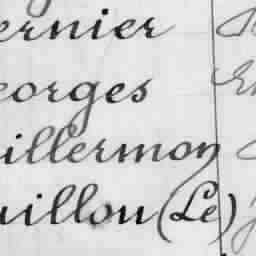 ernier
eorges
illermon
uillou (Le)